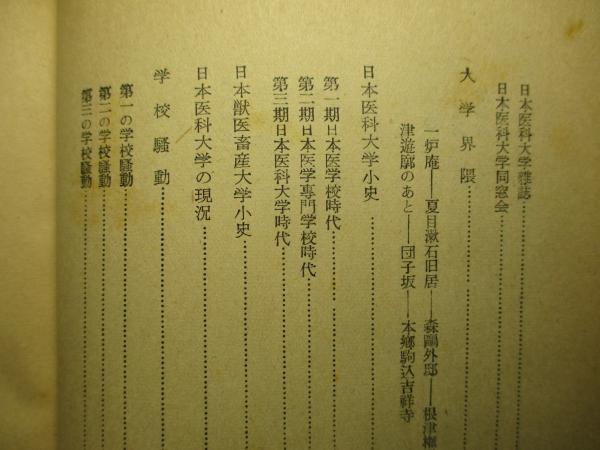 日本医科大学雑誌……………
日本医科大学同窓会……………
大学界隈……………
一炉庵――夏目漱石旧居――森鷗外邸――根津権
津遊廓のあと――団子坂――本郷駒込吉祥寺
日本医科大学小史……………
第一期日本医学校時代……………
第二期日本医学専門学校時代……………
第三期日本医科大学時代……………
日本獣医畜産大学小史……………
日本医科大学の現況……………
学校騒動……………
第一の学校騒動……………
第二の学校騒動……………
第三の学校騒動……………